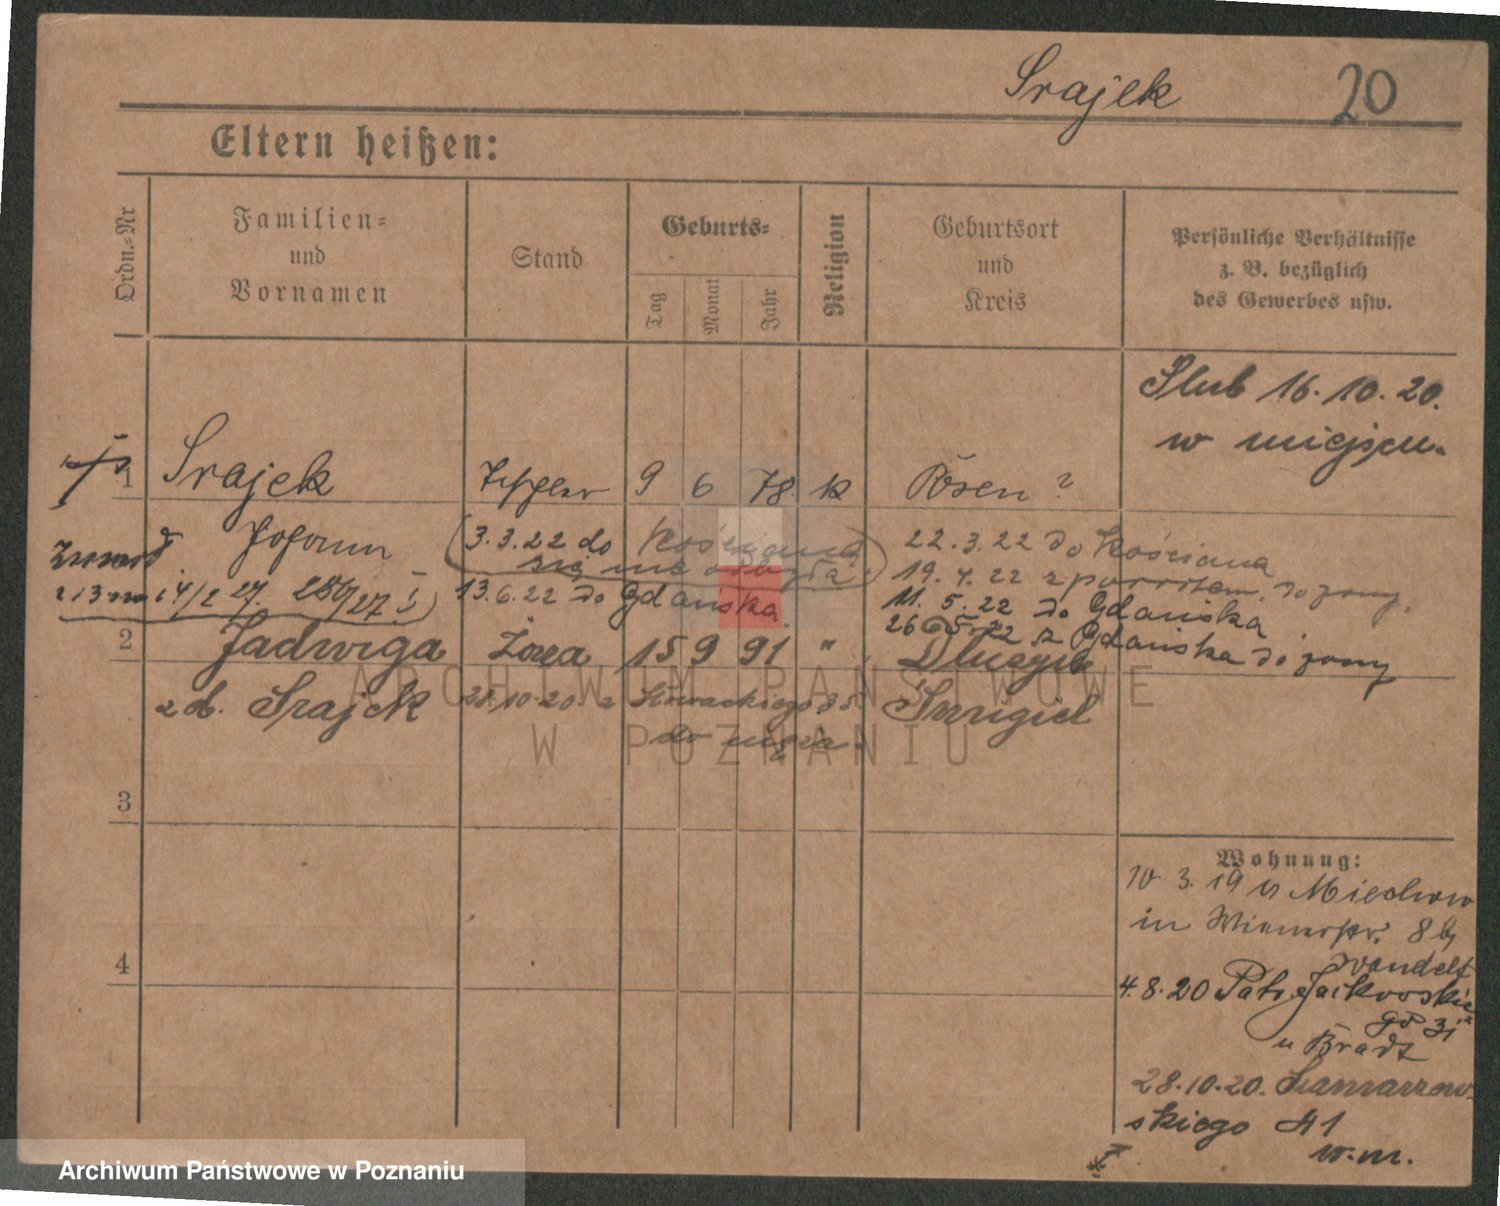 Srajek 20
Eltern heißen:
Ordn.=Nr
Familien=
und
Vornamen
Stand
Geburts=
Tag
Monat
Jahr
Religion
Geburtsort
und
Kreis
Persönliche Verhältnisse
z. B. bezüglich
des Gewerbes usw.
Ślub 16.10.20.
w miejscu.
1 Srajek Tischler 9 6 78. k Posen ?
Johann
3.3.22 do Kościana
się nie odbyła
22.3.22 do Kościana
19.4.22 z powrotem do żony.
13.6.22 do Gdańska.
11.5.22 do Gdańska
26.5.22 z Gdańska do żony
2 Jadwiga żona 15 9 91 "
zd. Srajek 28.10.20 z Słowackiego 35. Śmigiel
do męża.
3
4
Wohnung:
10.3.19 v Miechow
in Wienerstr. 8 bj
Wandelt
4.8.20 Patr. Jackowskie
go 31
u Bradt
28.10.20. Szamarzew-
skiego 41
w.m.
ARCHIWUM PAŃSTWOWE
W POZNANIU
Archiwum Państwowe w Poznaniu